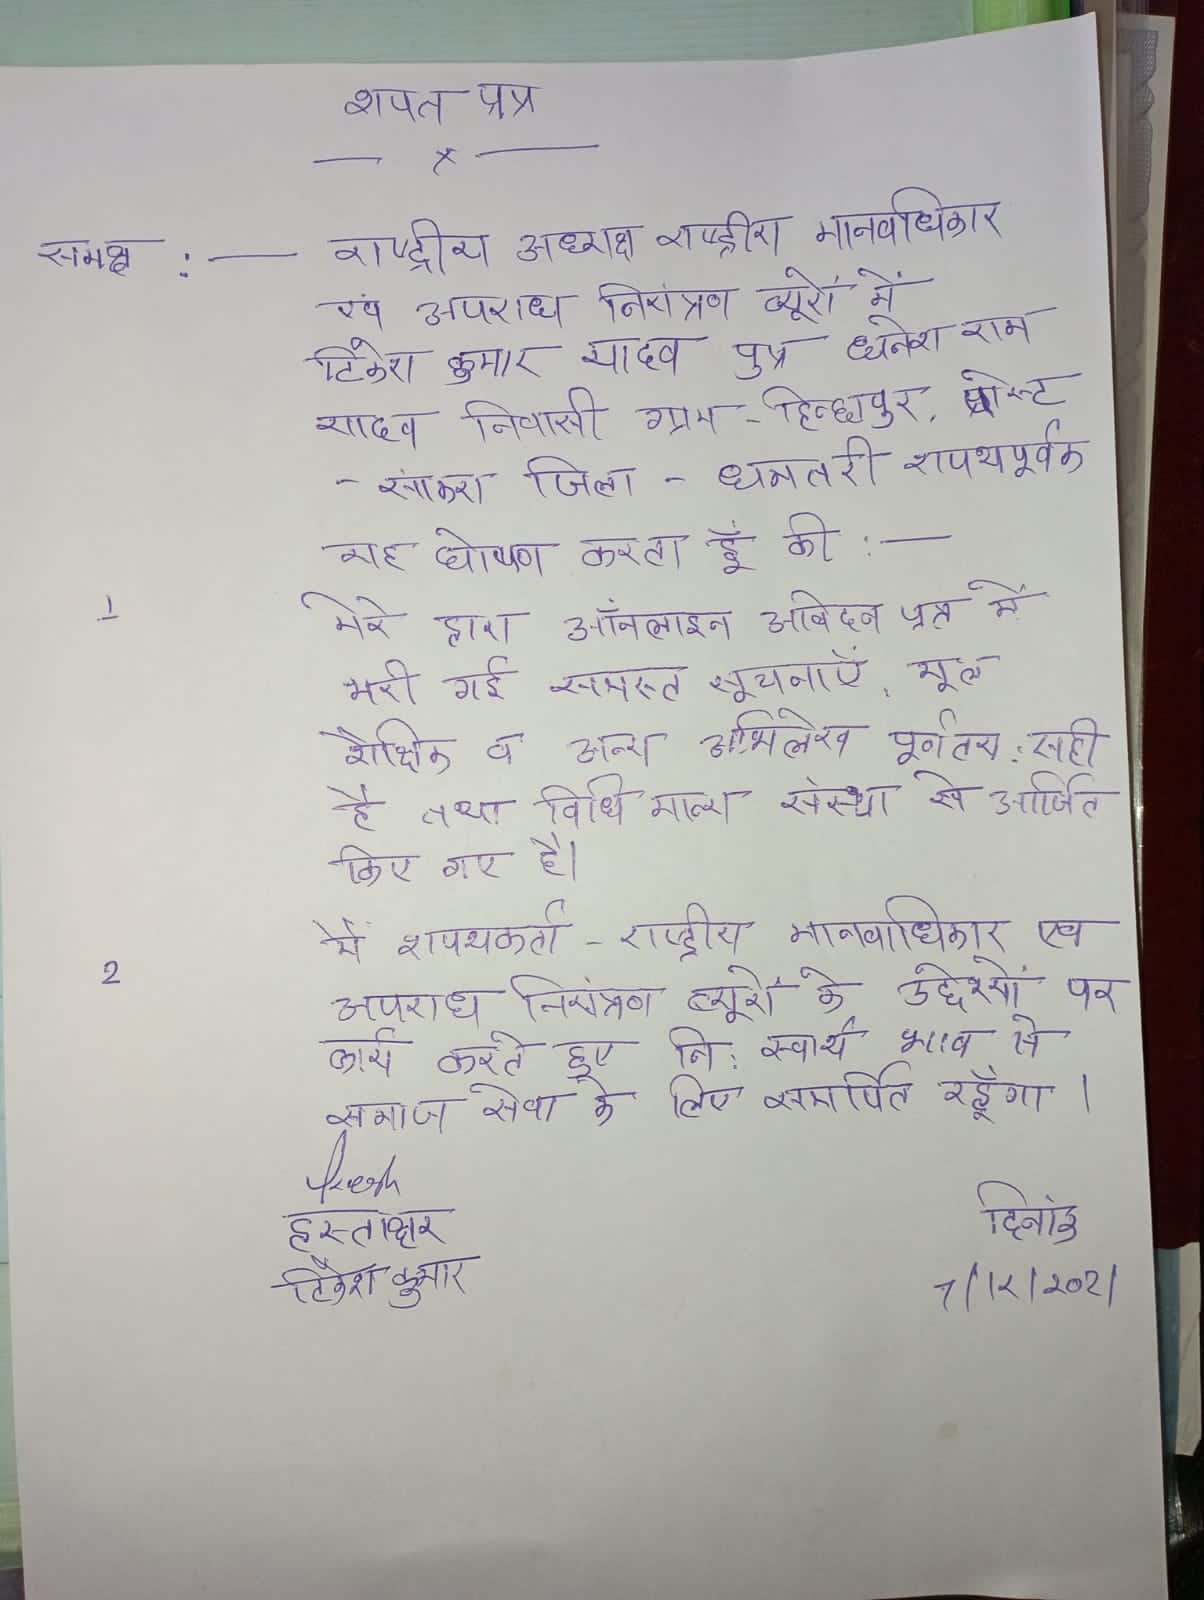 शपत प्रत्र
— x —
समक्ष :— राष्ट्रीय अध्यक्ष राष्ट्रीय मानवाधिकार
एवं अपराध नियंत्रण ब्यूरों में
टिकेश कुमार यादव पुत्र धनेश राम
यादव निवासी ग्राम - हिन्छापुर, पोस्ट
- सांकरा जिला - धमतरी शपथपूर्वक
यह घोषणा करता हूँ की :—
1 मेरे द्वारा ऑनलाइन आवेदन पत्र में
भरी गई समस्त सूचनाएँ, मूल
शैक्षिक व अन्य अभिलेख पूर्णतय: सही
है तथा विधि मान्य संस्था से अर्जित
किए गए है।
2 मैं शपथकर्ता - राष्ट्रीय मानवाधिकार एवं
अपराध नियंत्रण ब्यूरों के उद्देश्यों पर
कार्य करते हुए नि: स्वार्थ भाव से
समाज सेवा के लिए समर्पित रहूँगा ।
हस्ताक्षर दिनांक
टिकेश कुमार 7/12/2021